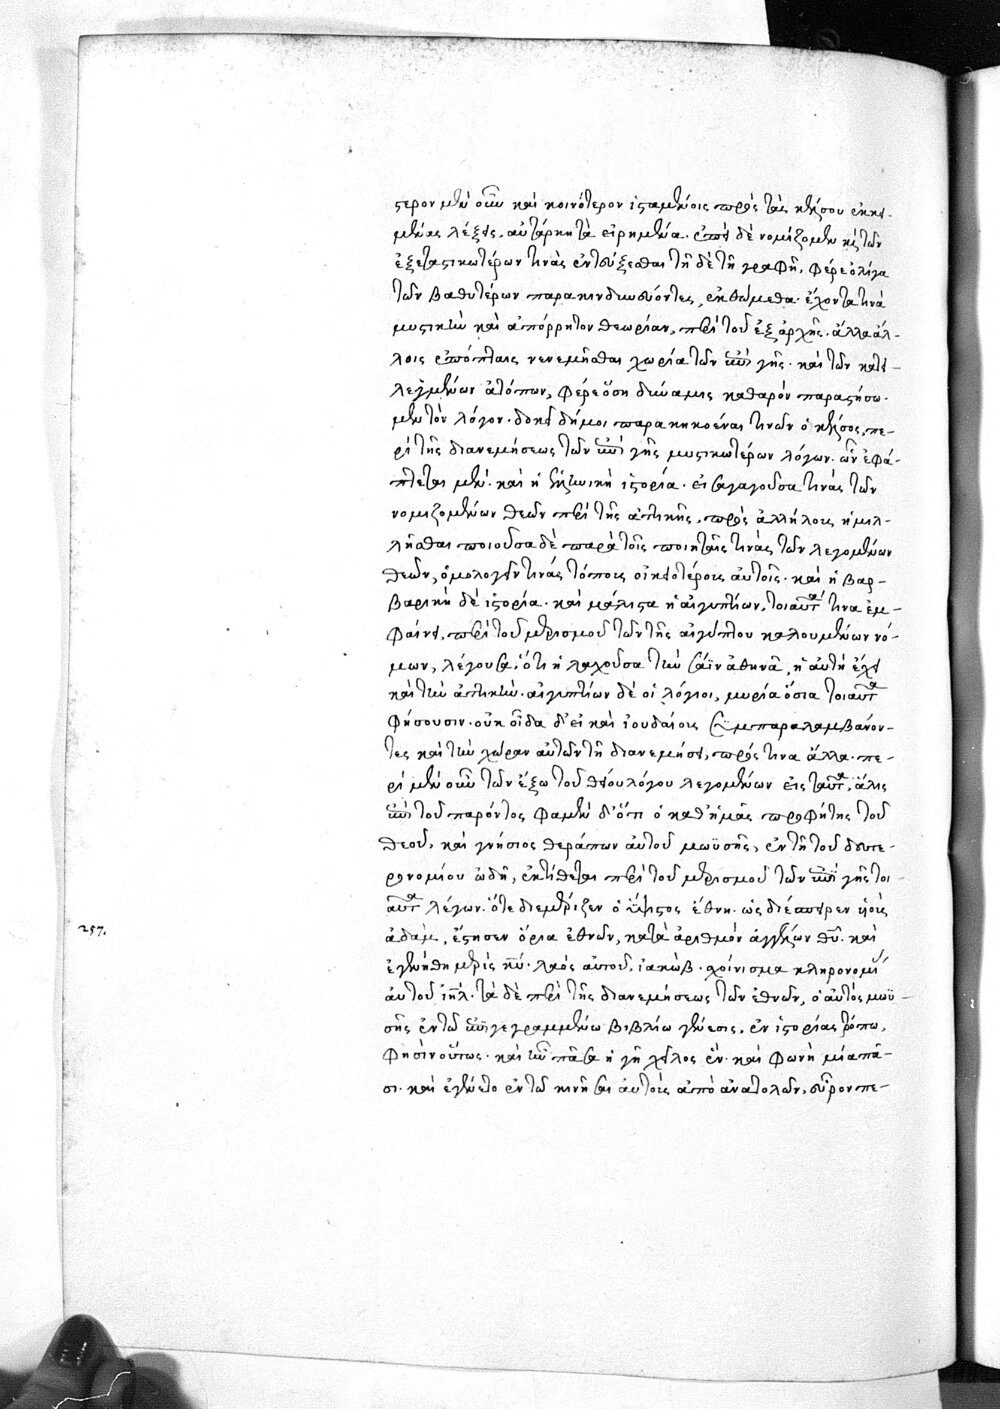 στερον μὲν οὖν καὶ κοινότερον ἱσταμένοις πρὸς τὰς κέλσου ἐκκει-
μένας λέξεις, αὐτάρκη τὰ εἰρημένα. ἐπεὶ δὲ νομίζομεν κ τῶν
ἐξεταστικωτέρων τινὰς ἐντεύξεσθαι τῇδε τῇ γραφῇ, φέρε ὀλίγα
τῶν βαθυτέρων παρακινδυνεύοντες, ἐκθώμεθα. ἔχοντά τινα
μυστικὴν καὶ ἀπόρρητον θεωρίαν, περὶ τοῦ ἐξ ἀρχῆς. ἄλλα ἄλ-
λοις ἐπόπταις νενεμῆσθαι χωρία τῶν ἐπὶ γῆς. καὶ τῶν κατει-
λεγμένων ἀτόπων, φέρε ὅση δύναμις καθαρὸν παραστήσω-
μεν τὸν λόγον. δοκεῖ δή μοι παρακηκοέναι τινῶν ὁ κέλσος, πε-
ρὶ τῆς διανεμήσεως τῶν ἐπὶ γῆς μυστικωτέρων λόγων. ὧν ἐφά-
πτεται μέν. καὶ ἡ ἑλληνικὴ ἱστορία. εἰσαγαγοῦσα τινὰς τῶν
νομιζομένων θεῶν περὶ τῆς ἀττικῆς, πρὸς ἀλλήλους ἡμιλ-
λῆσθαι ποιοῦσα δὲ παρὰ τοῖς ποιηταῖς τινὰς τῶν λεγομένων
θεῶν, ὁμολογεῖν τινάς τόπους οἰκειοτέρους αὐτοῖς. καὶ ἡ βαρ-
βαρικὴ δὲ ἱστορία. καὶ μάλιστα ἡ αἰγυπτίων, τοιαῦτά τινα ἐμ-
φαίνει, περὶ τοῦ μερισμοῦ τῶν τῆς αἰγύπτου καλουμένων νό-
μων, λέγουσα, ὅτι ἡ λαχοῦσα τὴν σάϊν ἀθηνᾶ, ἡ αὐτὴ ἔχει
καὶ τὴν ἀττικήν. αἰγυπτίων δὲ οἱ λόγιοι, μυρία ὅσα τοιαῦτα
φήσουσιν. οὐκ οἶδα δ' εἰ καὶ ἰουδαίους συμπαραλαμβάνον-
τες καὶ τὴν χώραν αὐτῶν τῇ διανεμήσει, πρός τινα ἄλλα. πε-
ρὶ μὲν οὖν τῶν ἔξω τοῦ θείου λόγου λεγομένων εἰς ταῦτα, ἅλις
ἐπὶ τοῦ παρόντος φαμὲν δ' ὅτι ὁ καθ' ἡμᾶς προφήτης τοῦ
θεοῦ, καὶ γνήσιος θεράπων αὐτοῦ μωϋσῆς, ἐν τῇ τοῦ δευτε-
ρονομίου ὠδῇ, ἐκτίθεται περὶ τοῦ μερισμοῦ τῶν ἐπὶ γῆς τοι-
αῦτα λέγων. ὅτε διεμέριζεν ὁ ὕψιστος ἔθνη. ὡς διέσπειρεν υἱοὺς
257. ἀδάμ, ἔστησεν ὅρια ἐθνῶν, κατὰ ἀριθμὸν ἀγγέλων θῦ. καὶ
ἐγενήθη μερὶς κῦ. λαὸς αὐτοῦ, ἰακώβ. σχοίνισμα κληρονομί
αὐτοῦ ἰηλ. τὰ δὲ περὶ τῆς διανεμήσεως τῶν ἐθνῶν, ὁ αὐτὸς μωϋ-
σῆς ἐν τῶ ἐπιγεγραμμένω βιβλίω γένεσις, ἐν ἱστορίας τρόπω,
φησὶν οὕτως. καὶ ἦν πᾶσα ἡ γῆ χεῖλος ἕν. καὶ φωνὴ μία πᾶ-
σι. καὶ ἐγένετο ἐν τῶ κινῆσαι αὐτοὺς ἀπὸ ἀνατολῶν, εὗρον πε-